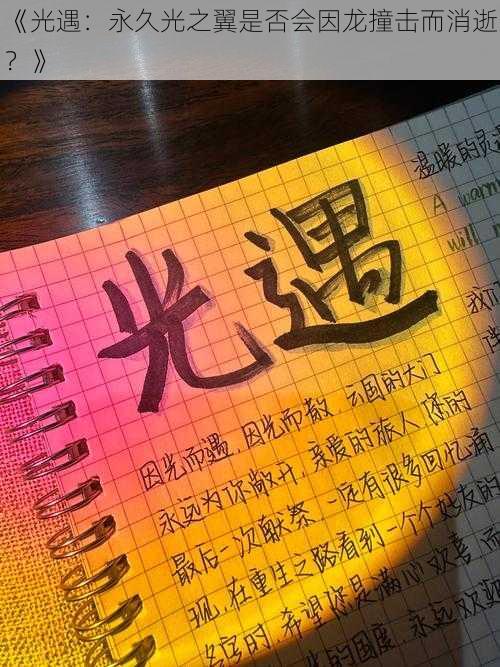 《光遇：永久光之翼是否会因龙撞击而消逝
？》
温暖的灵
A warm
will
我们
光遇
因光而遇，因光而散，云国的大门
永远为你敞开，亲爱的旅人，您的
最后一次献祭，一定有很多回忆涌
现，在重生之路看到一个个好友的
名字时，希望您是满心欢喜，而
的国度，永远欢迎